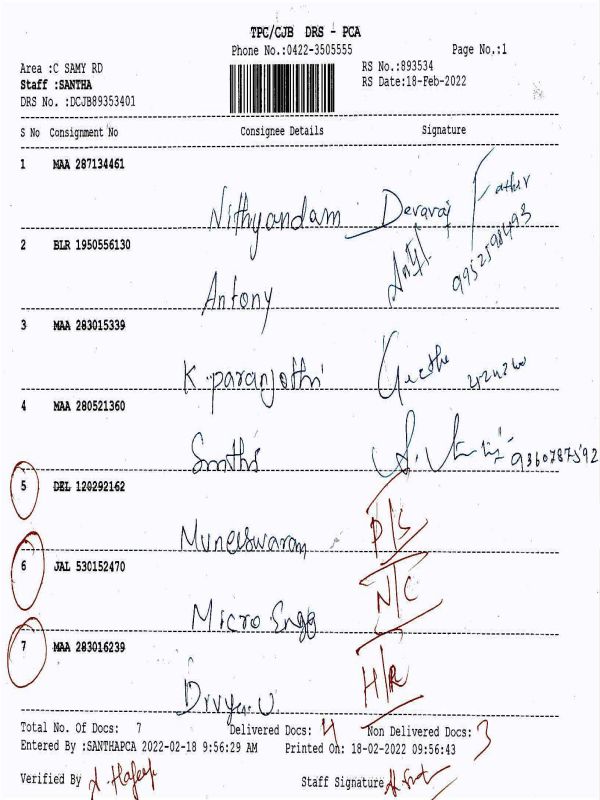 TPC/CJB DRS - PCA
Phone No.:0422-3505555 Page No.:1
Area :C SAMY RD RS No.:893534
Staff :SANTHA RS Date:18-Feb-2022
DRS No. :DCJB89353401
S No Consignment No Consignee Details Signature
1 MAA 287134461
Nithyandam Devaraj Father
2 BLR 1950556130
9952598493
Antony
3 MAA 283015339
K. paranjothi Geetha
4 MAA 280521360
9360787592
5 DEL 120292162
Muneeswaram P/S
6 JAL 530152470
Micro Engg N/C
7 MAA 283016239
Divya. U. H/R
Total No. Of Docs: 7 Delivered Docs: 4 Non Delivered Docs: 3
Entered By :SANTHAPCA 2022-02-18 9:56:29 AM Printed On: 18-02-2022 09:56:43
Verified By Staff Signature